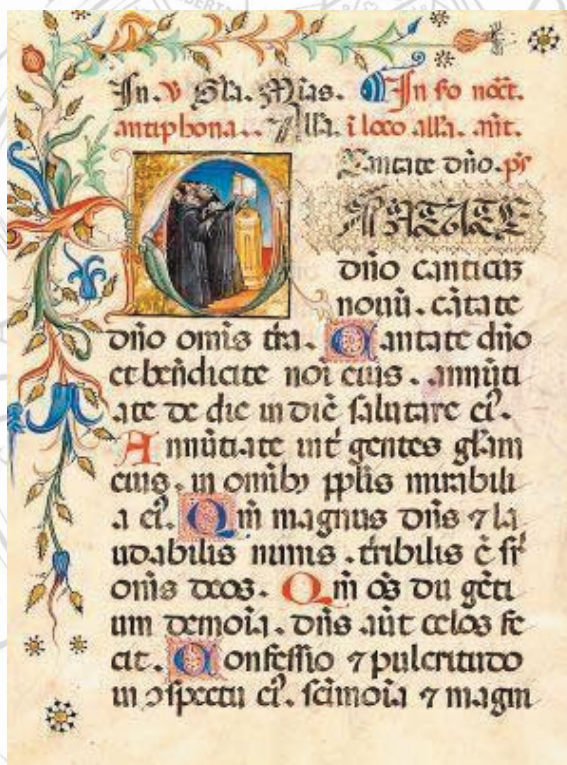 In. V Gła. Mīas. In ſo noct̄.
antiphona.. Alła. ī loco alła. ant̄.
Cantate dn̄o. ps̄
ANTATE
dn̄o canticū
nouū. cātate
dn̄o om̄is tr̄a. Cantate dn̄o
et ben̄dicite noī eius. annūti
ate de die in diē ſalutare eiꝰ.
Annūtiate int̄ gentes gl̄am
eius. in om̄ibꝫ ppl̄is mirabili
a eiꝰ. Qm̄ magnus dn̄s ⁊ la
udabilis nimis. tr̄ibilis ē ſr̄
om̄s deos. Qm̄ oēs dii gēti
um demoīa. dn̄s aūt celos fe
cit. Confeſſio ⁊ pulcritudo
in ꝯſpectu eiꝰ. ſc̄imoīa ⁊ magni